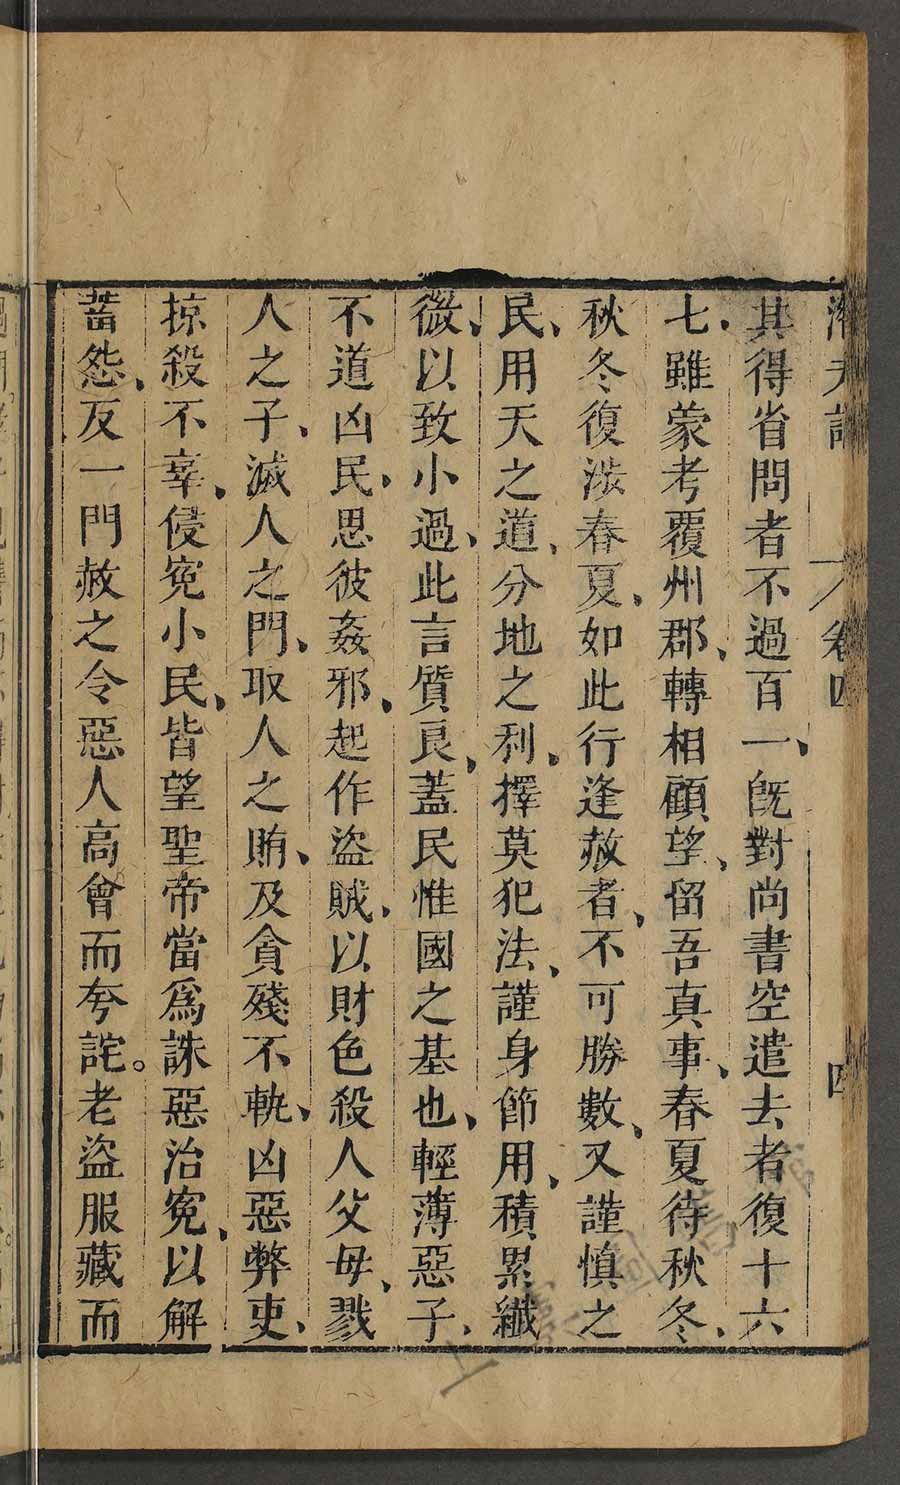 潛夫論 卷四 四
其得省問者不過百一、旣對尚書空遣去者復十六
七、雖蒙考覆州郡、轉相顧望、留吾真事、春夏待秋冬、
秋冬復涉春夏、如此行逢赦者、不可勝數、又謹慎之
民、用天之道、分地之利、擇莫犯法、謹身節用、積累纖
微、以致小過、此言質良、蓋民惟國之基也、輕薄惡子、
不道凶民、思彼姦邪、起作盜賊、以財色殺人父母、戮
人之子、滅人之門、取人之賄、及貪殘不軌、凶惡弊吏、
掠殺不辜、侵冤小民、皆望聖帝當爲誅惡治冤、以解
蓄怨、反一門赦之令惡人高會而夸詫。老盜服藏而